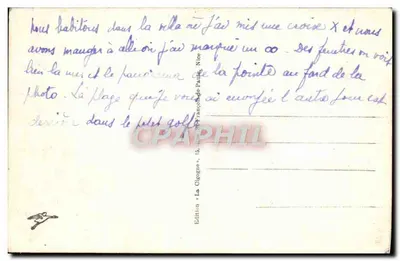 nous habitons dans la villa où j'ai mis une croix X et nous
avons manger à où j'ai marqué un ∞. Des fenetres on voit
bien la mer et le panorama de la pointe au fond de la
photo. La plage que je vous ai envoyée l'autre jour est
derrière dans le petit golfe
Edition "La Cigogne", de Paule, Nice
delcampe.net